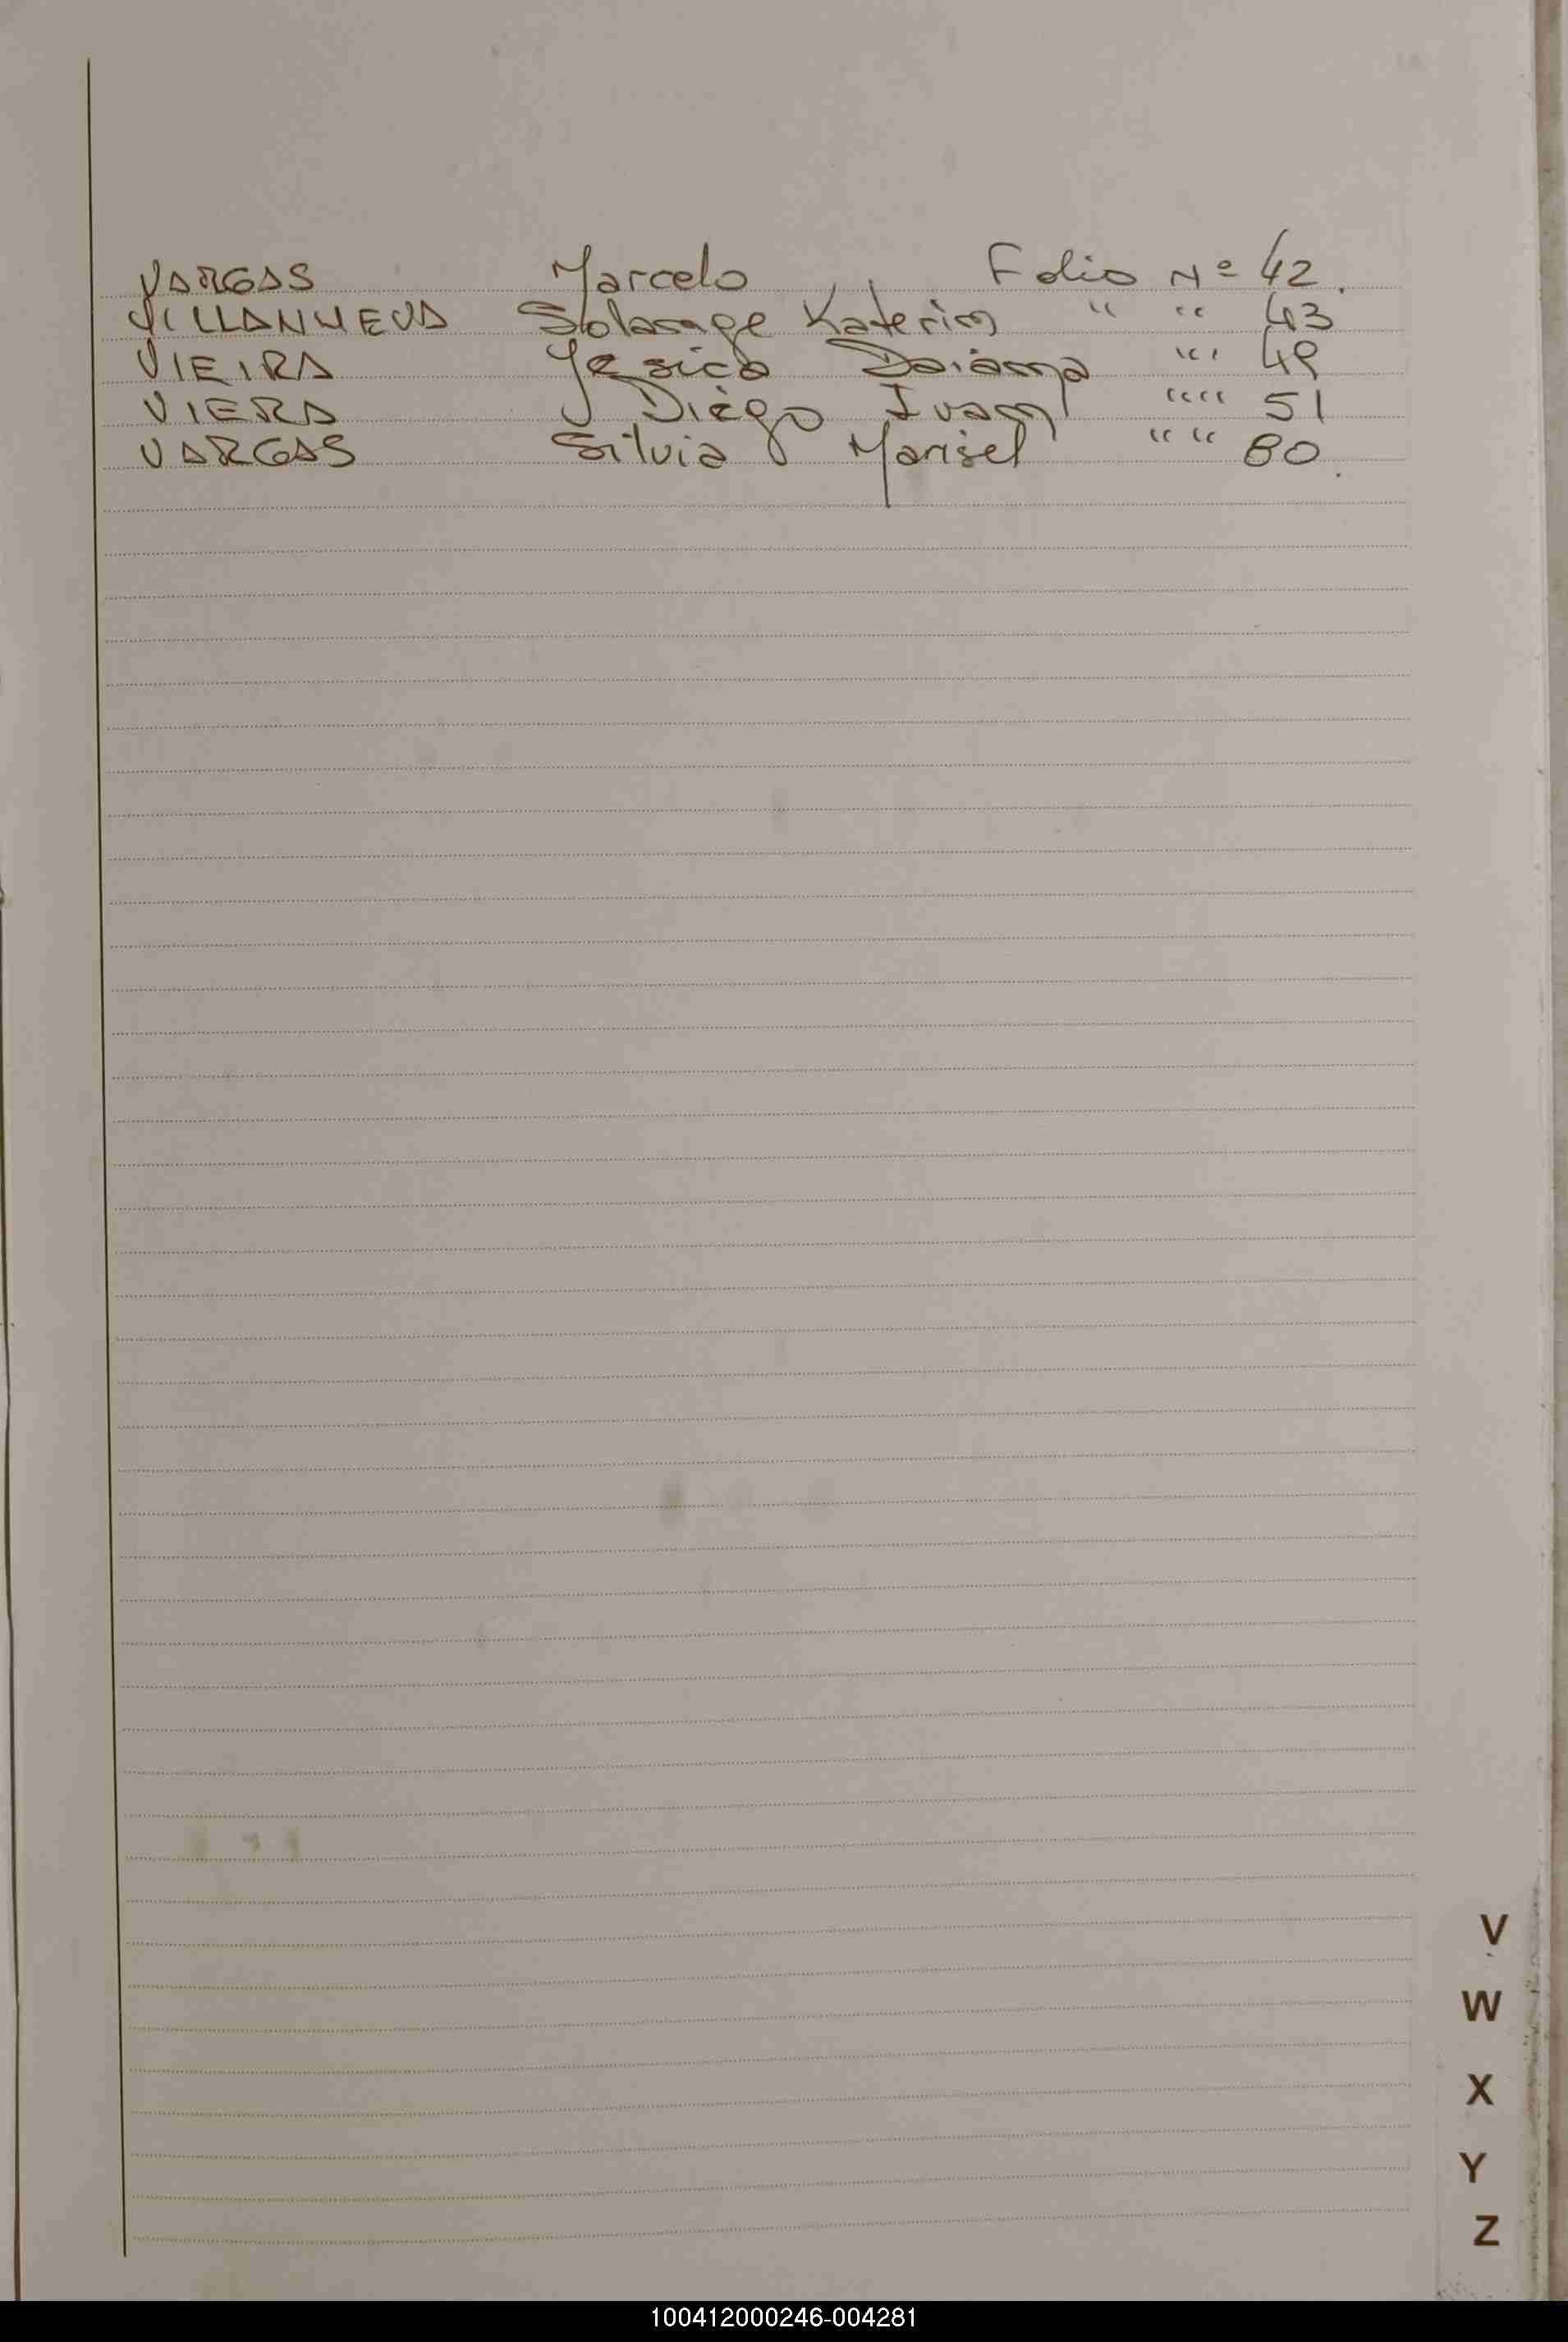 VARGAS Marcelo Folio Nº 42.
VILLANUEVA Solange Katerin " " 43
VIEIRA Yesica Daiana " " 49
VIERA Diego Ivan " " 51
VARGAS Silvia Marisel " " 80.
V
W
X
Y
Z
100412000246-004281